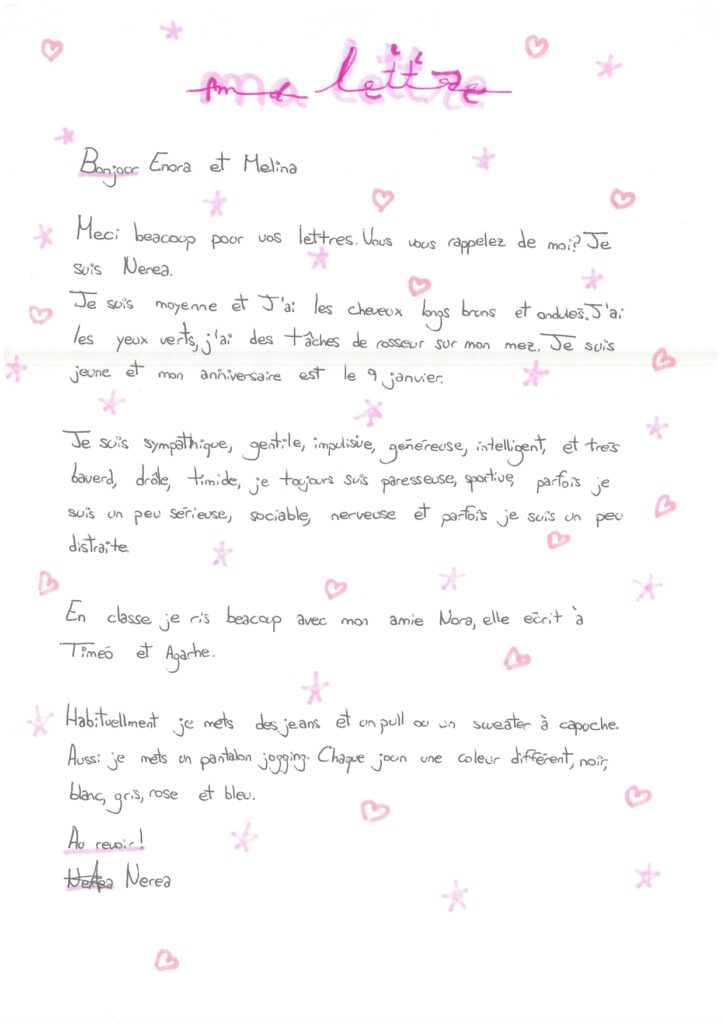 ma lettre
Bonjour Enora et Melina
Meci beacoop pour vos lettres. Vous vous rappelez de moi? Je
suis Nerea.
Je suis moyenne et J'ai les cheveux longs bruns et ondulés. J'ai
les yeux verts, j'ai des tâches de rosseur sur mon mez. Je suis
jeune et mon anniversaire est le 9 janvier.
Je suis sympathique, gentile, impulsive, généreuse, intelligent, et très
baverd, drôle, timide, je toujours suis paresseuse, sportive, parfois je
suis un peu sérieuse, sociable, nerveuse et parfois je suis un peu
distraite.
En classe je ris beacoup avec mon amie Nora, elle ecrit à
Timeó et Agathe.
Habituellment je mets des jeans et un pull ou un sweater à capoche.
Aussi je mets un pantalon jogging. Chaque joun une coleur différent, noir,
blanc, gris, rose et bleu.
Au revoir!
Nerea